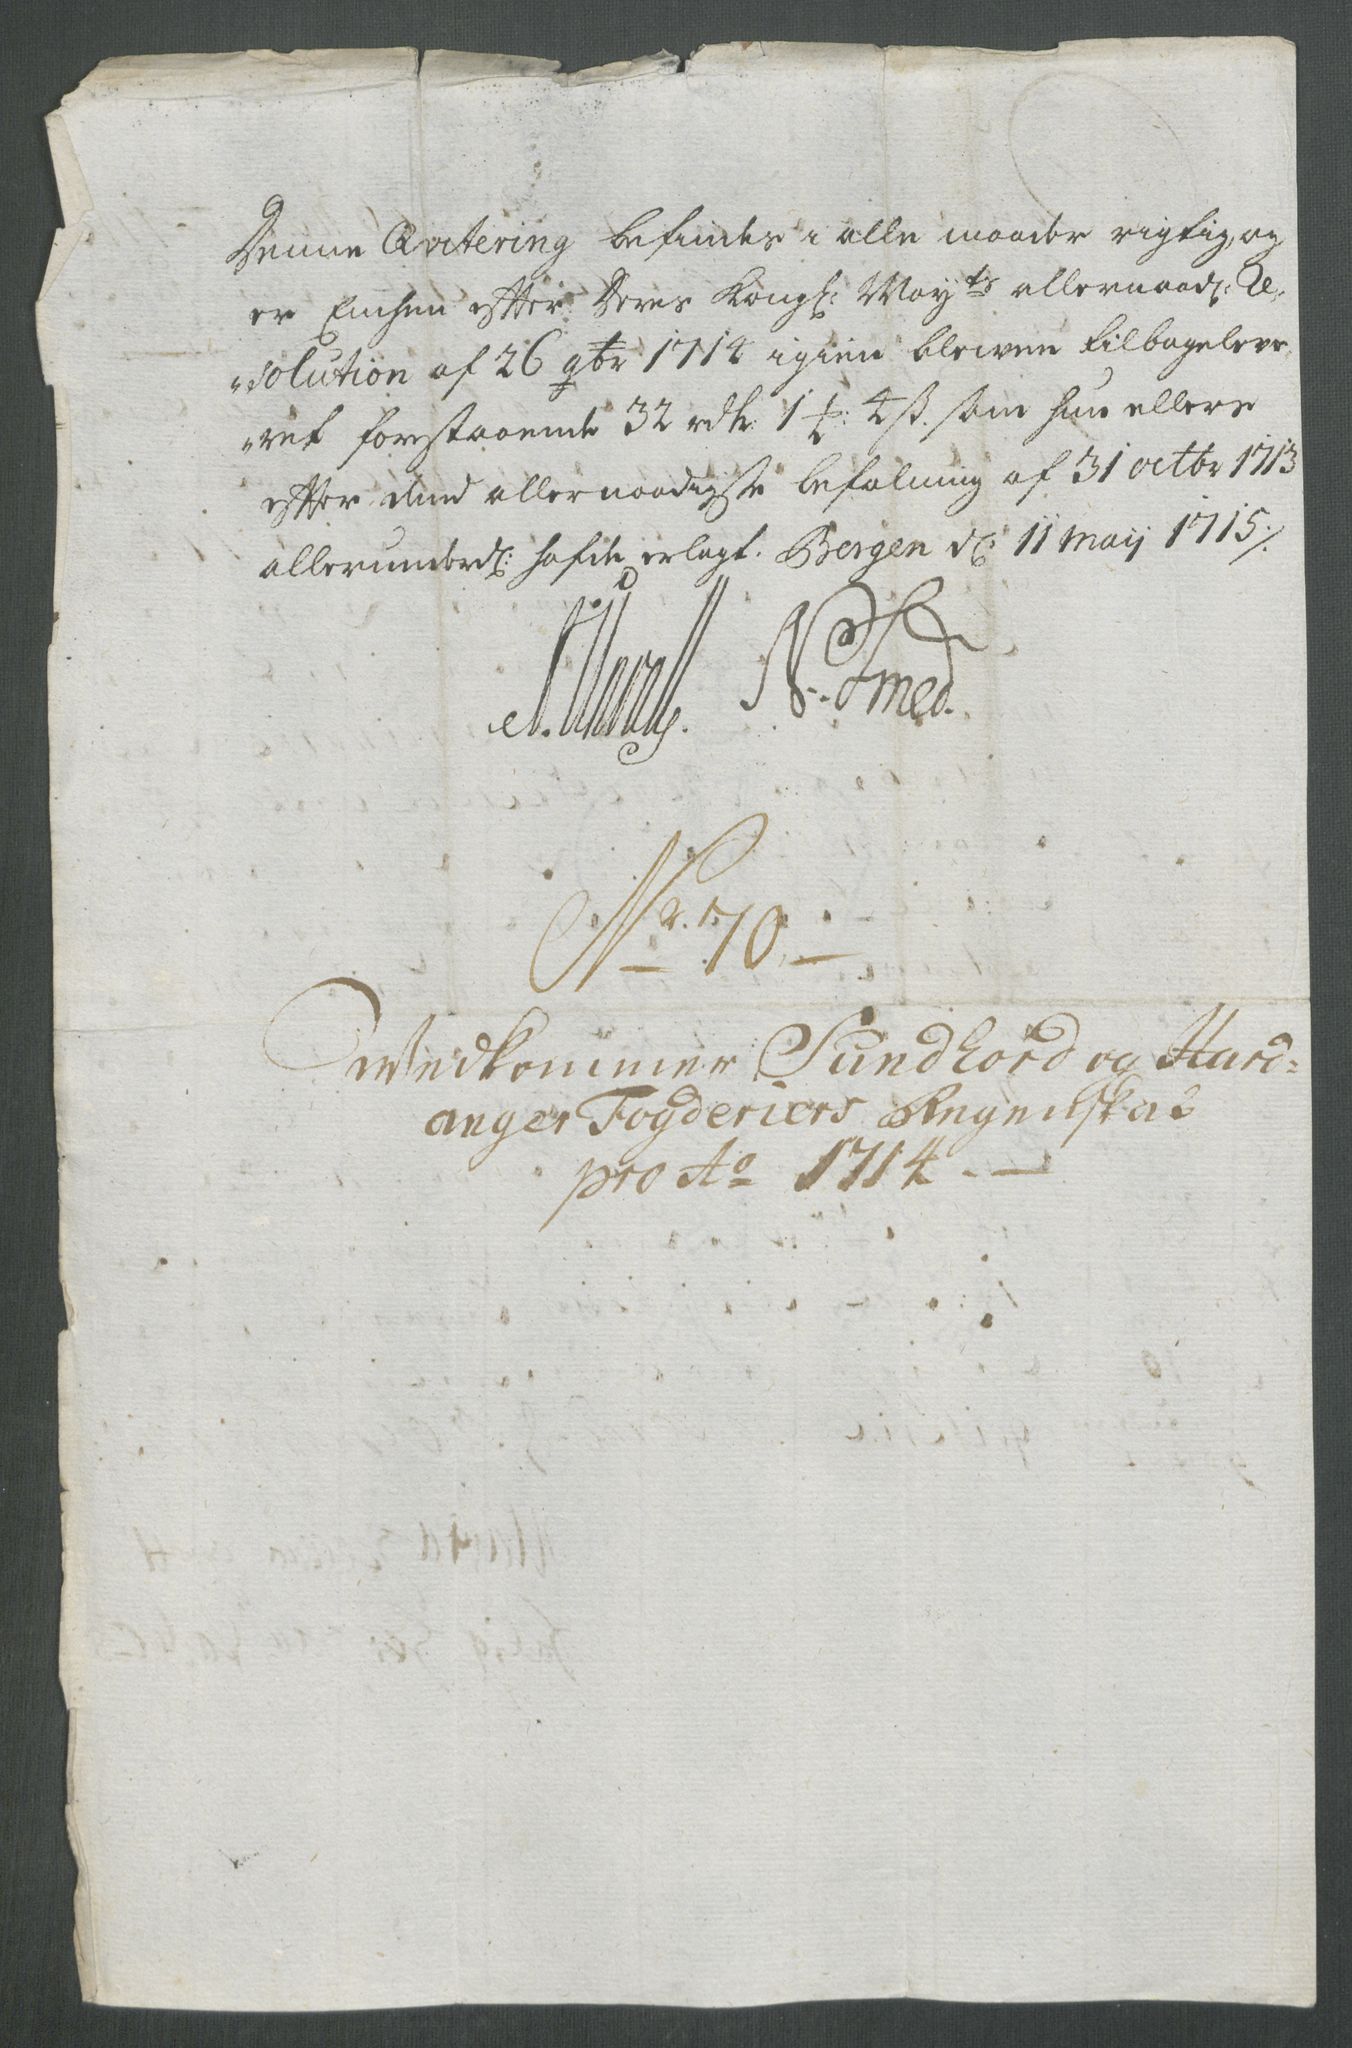 Denne Qvitering befindes i alle maader rigtig, og
er Enchen efter Deres Kongl: Mayts allernaadl: Re-
solution af 26 9br 1714 igien blewen tilbageleve-
ret forstaaende 32 rdr: 1 4 ß. som hun ellers
efter dend allernaadigste befalning af 31 octbr 1713
allerunderdl: hafde erlagt. Bergen d: 11 maij 1715
N: Smed.
Nr. 70.
Wedkommer Sundhord og Hard-
anger Fogderiers Regenskab
pro Ao 1714